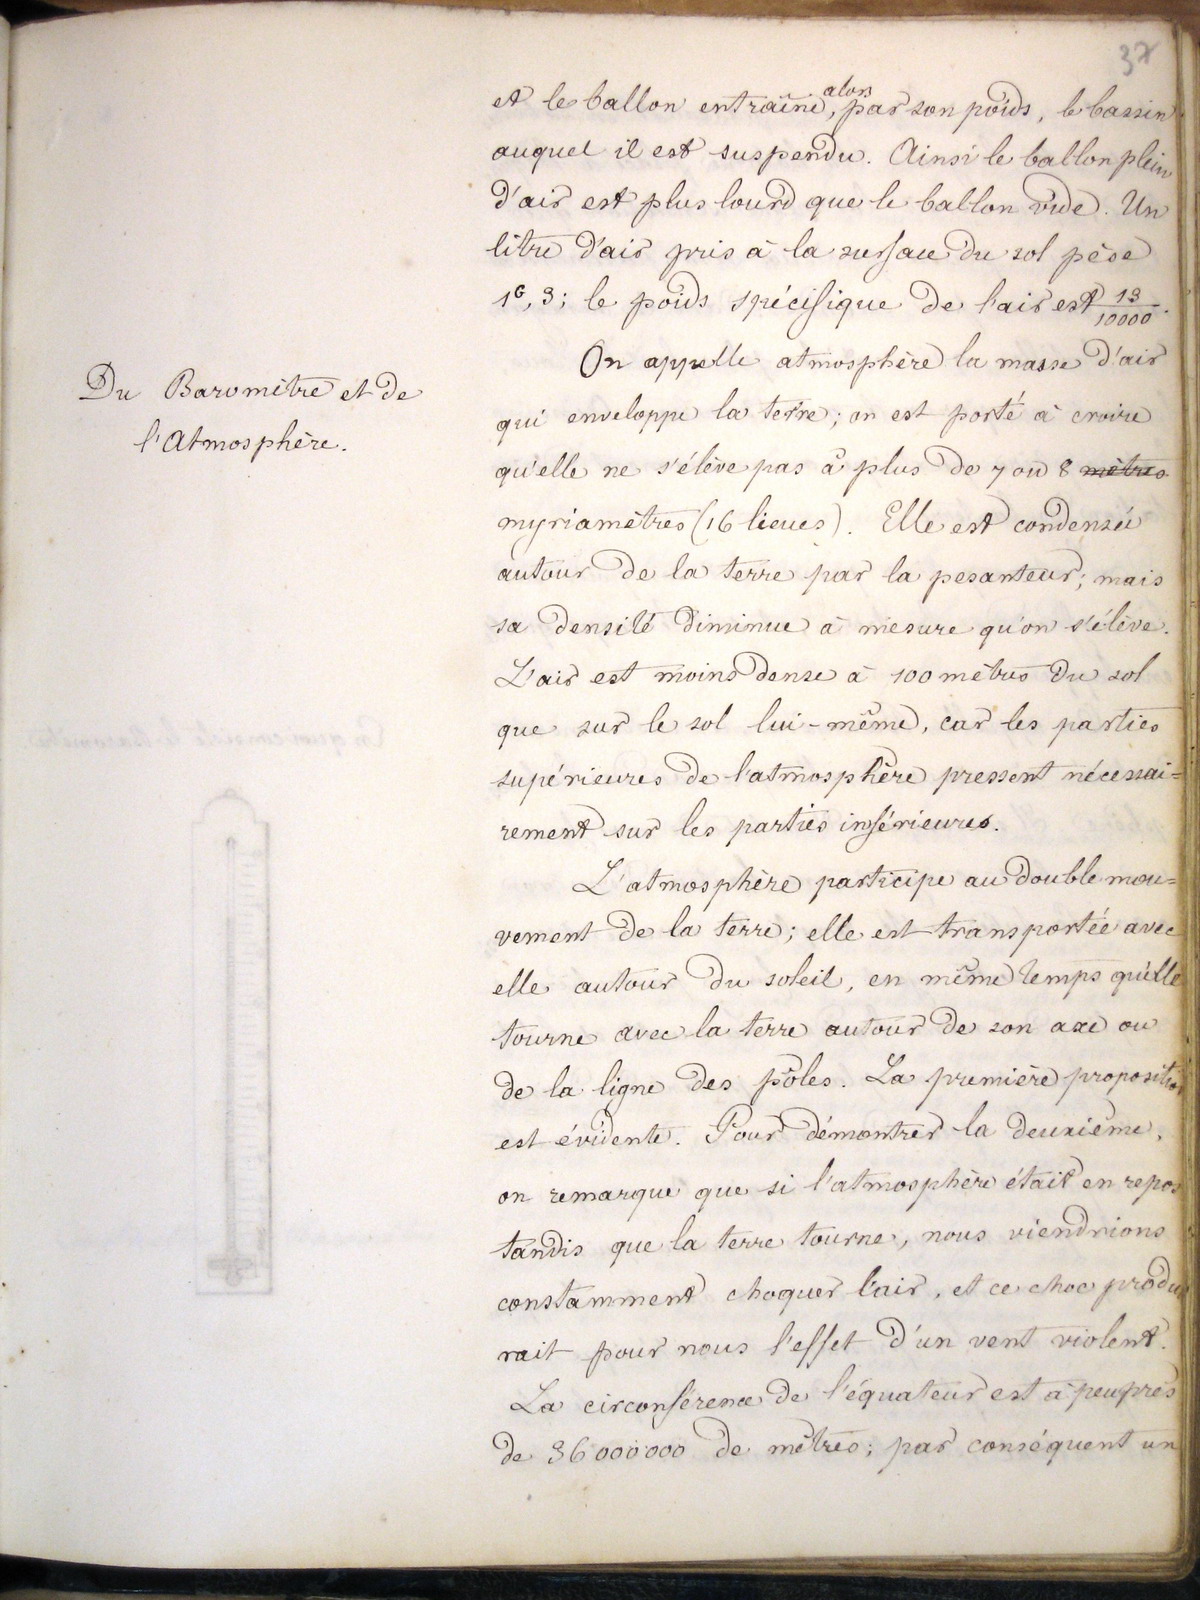 37
et le ballon entraîne, alors par son poids, le bassin
auquel il est suspendu. Ainsi le ballon plein
d'air est plus lourd que le ballon vide. Un
litre d'air pris à la surface du sol pèse
1G,3; le poids spécifique de l'air est 13/10000.
Du Baromètre et de
l'Atmosphère.
On appelle atmosphère la masse d'air
qui enveloppe la terre; on est porté à croire
qu'elle ne s'élève pas à plus de 7 ou 8 mètres
myriamètres (16 lieues). Elle est condensée
autour de la terre par la pesanteur; mais
sa densité diminue à mesure qu'on s'élève.
L'air est moins dense à 100 mètres du sol
que sur le sol lui-même, car les parties
supérieures de l'atmosphère pressent nécessai=
rement sur les parties inférieures.
L'atmosphère participe au double mou=
vement de la terre; elle est transportée avec
elle autour du soleil, en même temps qu'elle
tourne avec la terre autour de son axe ou
de la ligne des pôles. La première proposition
est évidente. Pour démontrer la deuxième,
on remarque que si l'atmosphère était en repos
tandis que la terre tourne, nous viendrions
constamment choquer l'air, et ce choc produi
rait pour nous l'effet d'un vent violent.
La circonférence de l'équateur est à peu près
de 36000000 de mètres; par conséquent un